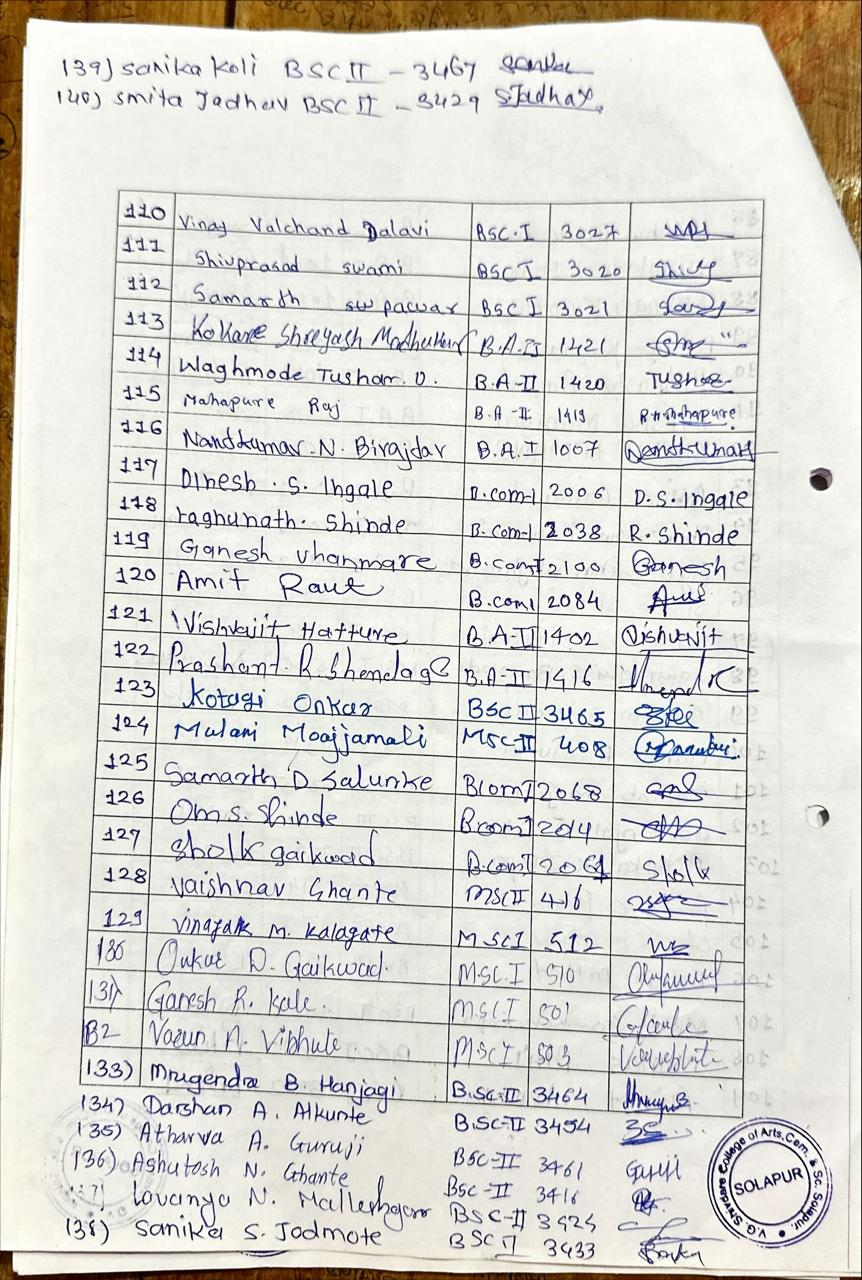 139) Sanika Koli BSC II - 3467
140) Smita Jadhav BSC II - 3429 S.Jadhav
110 Vinay Valchand Dalavi BSC.I 3027
111 Shivprasad swami BSC I 3020 Shivp
112 Samarth pawar BSC I 3021
113 Kokare Shreyash Madhukar B.A.II 1421
114 Waghmode Tushar. D. B.A-II 1420 Tushar
115 Mahapure Raj B.A-II 1419 Mahapure
116 Nandkumar.N. Birajdar B.A.I 1007 Nandkumar
117 Dinesh. S. Ingale B.com-I 2006 D.S. Ingale
118 raghunath. Shinde B.Com-I 2038 R. Shinde
119 Ganesh vhanmare B.comI 2100 Ganesh
120 Amit Raut B.com1 2084 Amit
121 Vishvajit Hatture B.A-II 1402 Vishvajit
122 Prashant.R.Shendage B.A-II 1416
123 Kotagi Onkar BSC II 3465
124 Mulani Moajjamali MSC-II 408
125 Samarth D Salunke BComI 2068
126 Om.S.Shinde BcomI 2014
127 Sholk gaikwad B.comI 2061 Sholk
128 Vaishnav Ghante MSCII 416
129 vinayak M. Kalagate M SCI 512
130 Onkar D. Gaikwad. M.SC.I 510
131) Ganesh R. Kale. M.SC.I 501
132 Varun A. Vibhute. M.Sc I 503
133) Mrugendra B. Hanjagi B.SC-II 3464
134) Darshan A. Alkunte B.SC-II 3454
135) Atharva A. Guruji BSC-II 3461 Guruji
136) Ashutosh N. Ghante BSC-II 3416
137) Lavanya N. BSC-II 3424
138) Sanika S. Jadmote BSC II 3433
V.G. Shivdare College of Arts, Com. & Sc. Solapur.
SOLAPUR